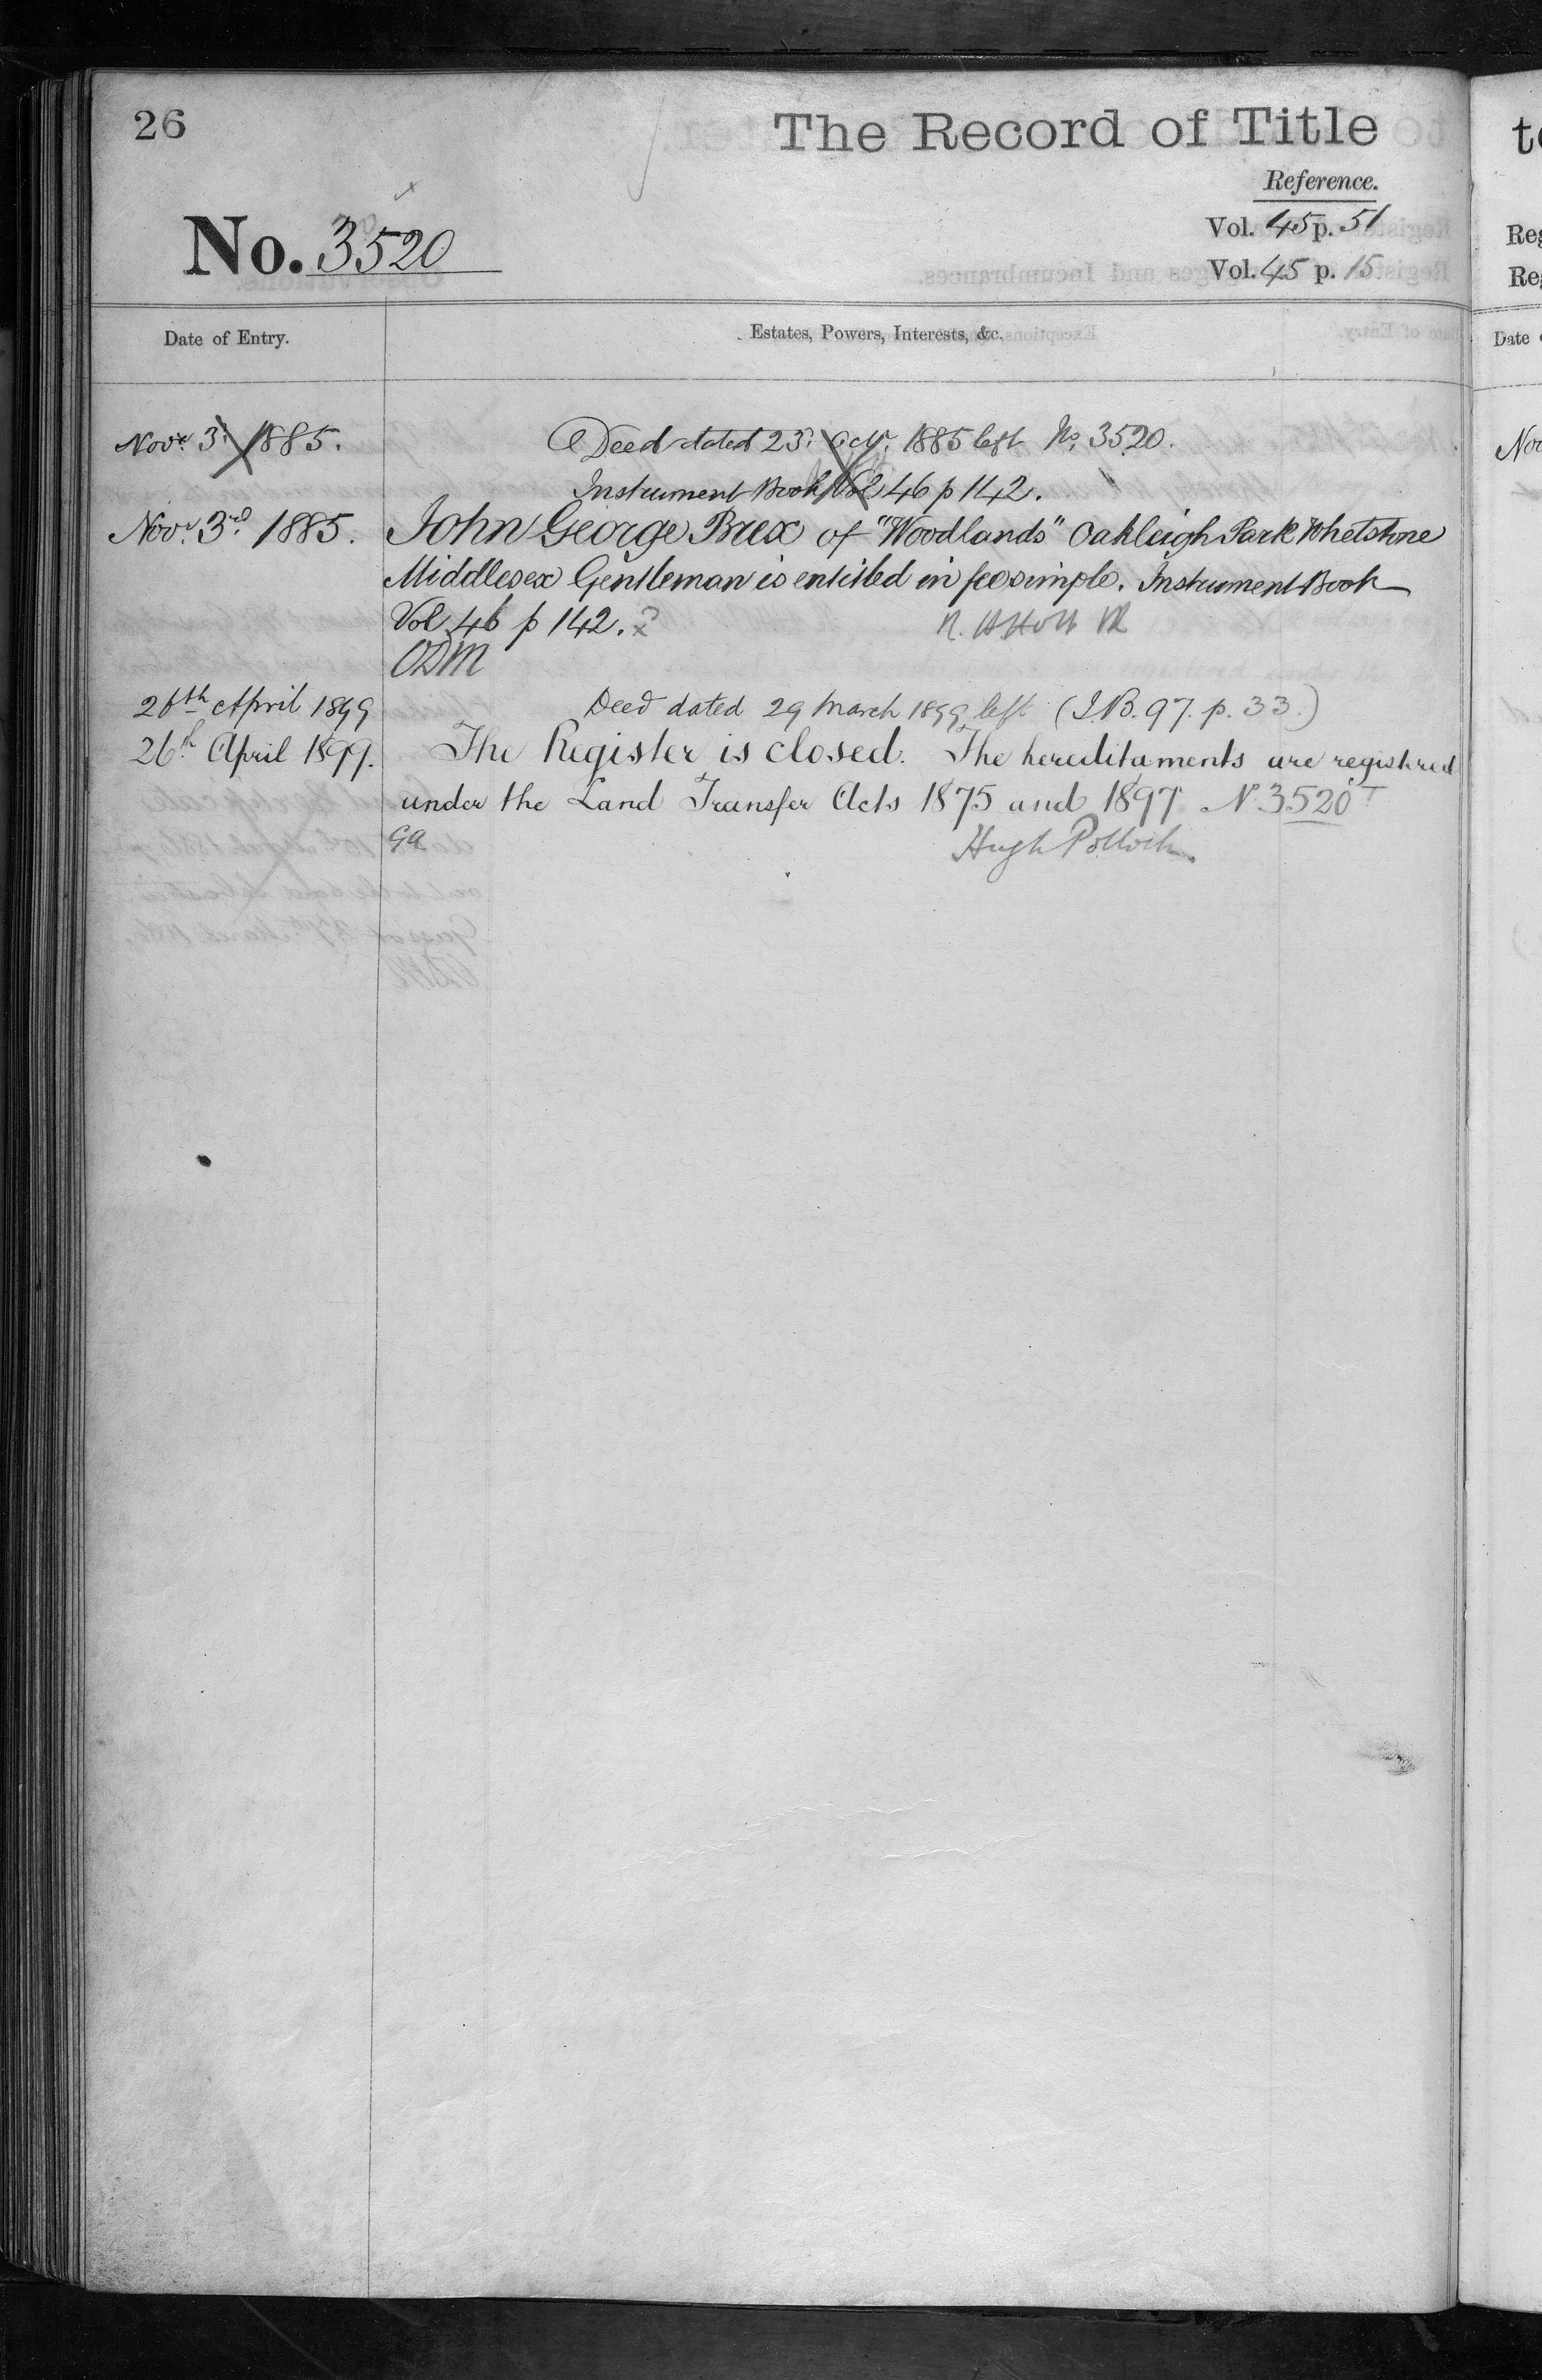 26
The Record of Title
Reference.
No. 3520
Vol. 45 p. 51
Vol. 45 p. 15
Date of Entry.
Estates, Powers, Interests, &c.
Novr. 3d. 1885.
Deed dated 23d. Octr. 1885 left No. 3520.
Instrument Book Vol 46 p 142.
Novr. 3rd 1885.
John George Brex of "Woodlands" Oakleigh Park Whetstone
Middlesex Gentleman is entitled in fee simple. Instrument Book
Vol 46 p 142.
ODM
26th April 1899
Deed dated 29 March 1899 left (I.B. 97. p. 33.)
26th April 1899.
The Register is closed. The hereditaments are registered
under the Land Transfer Acts 1875 and 1897 No 3520
GA
Hugh Pollock.
to
Reg
Reg
Date
Nov